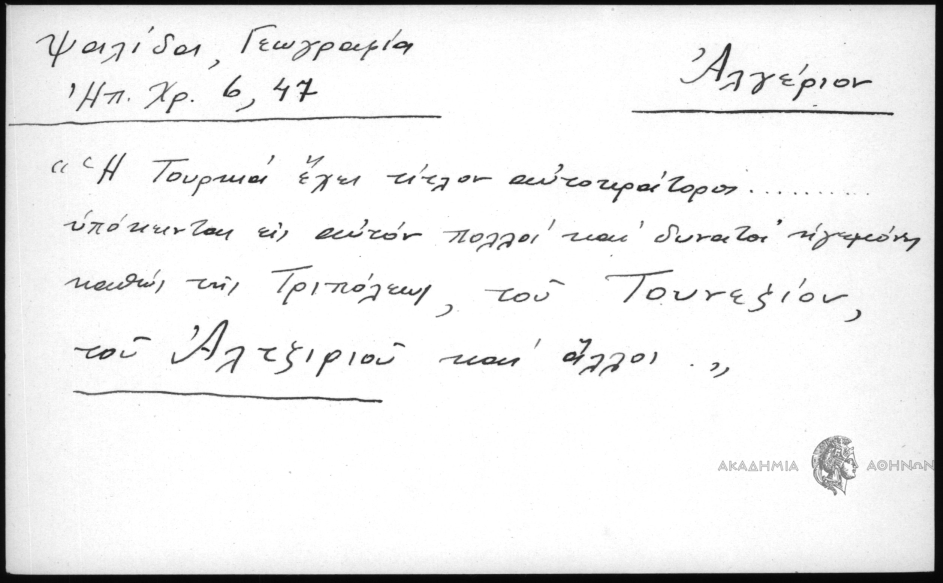 Ψαλίδα, Γεωγραφία
Ἠπ. Χρ. 6, 47
Ἀλγέριον
"Ἡ Τουρκιά ἔχει τίτλον αὐτοκράτορος..........
ὑπόκεινται εἰς αὐτόν πολλοί καί δυνατοί ἡγεμόνες
καθώς τῆς Τριπόλεως, τοῦ Τουνεζίου,
τοῦ Ἀλτζιριοῦ καί ἄλλοι."
ΑΚΑΔΗΜΙΑ ΑΘΗΝΩΝ